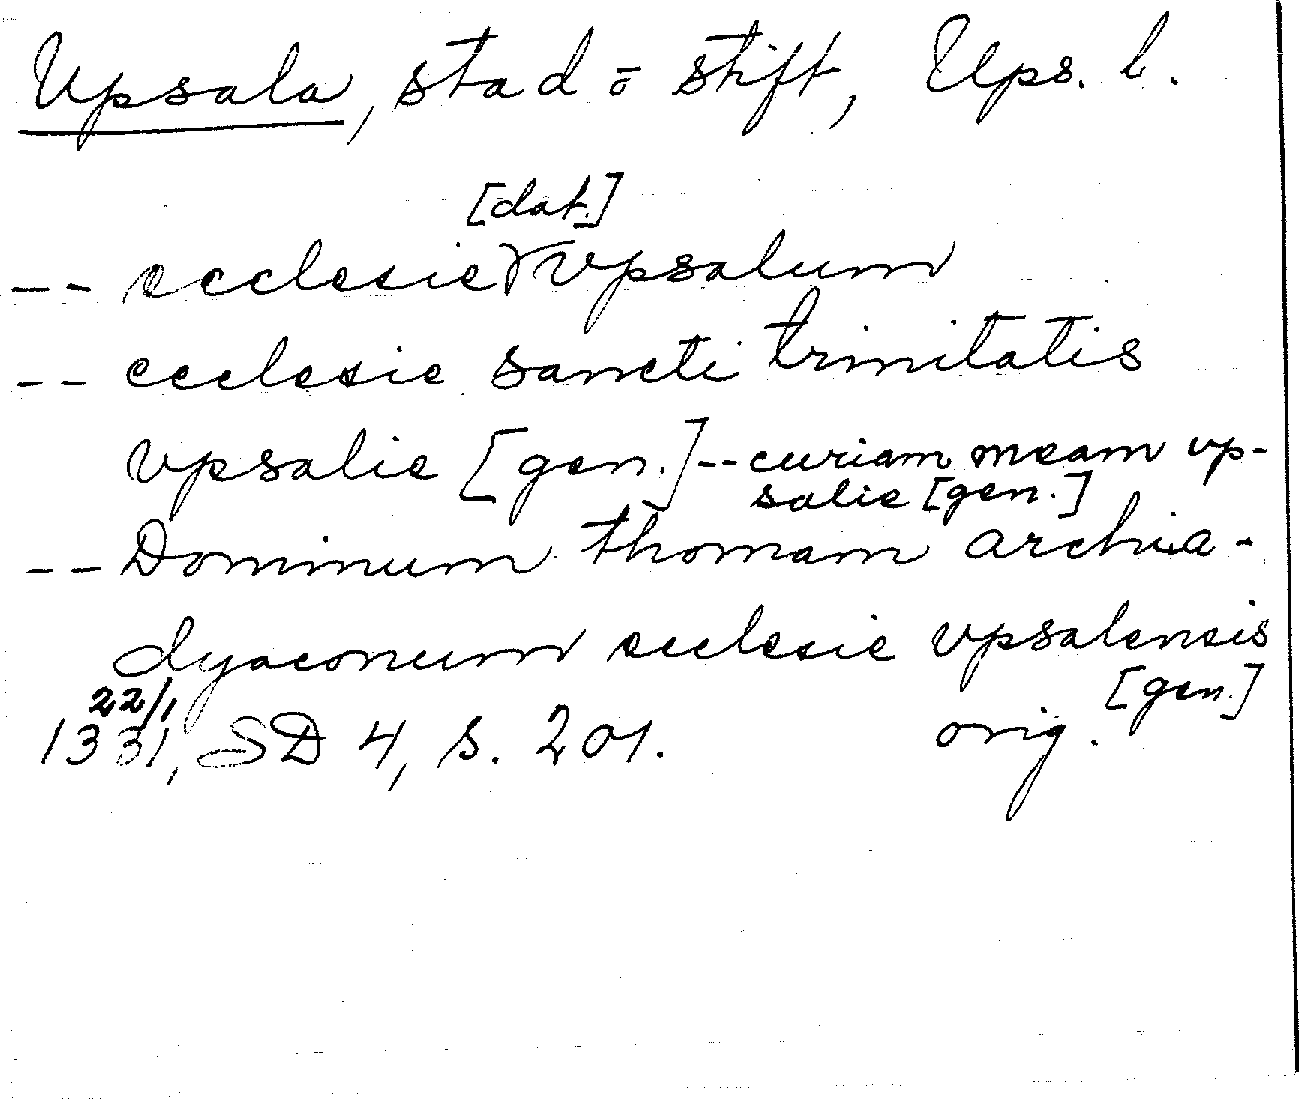 Upsala, stad o stift, Ups. l.
[dat.]
-- ecclesie vpsalum
-- ecclesie sancti trinitatis
vpsalie [gen.] -- curiam meam vp-
salie [gen.]
-- Dominum thomam archia-
dyaconum ecclesie vpsalensis
[gen.]
22/1
1331, SD 4, s. 201. orig.